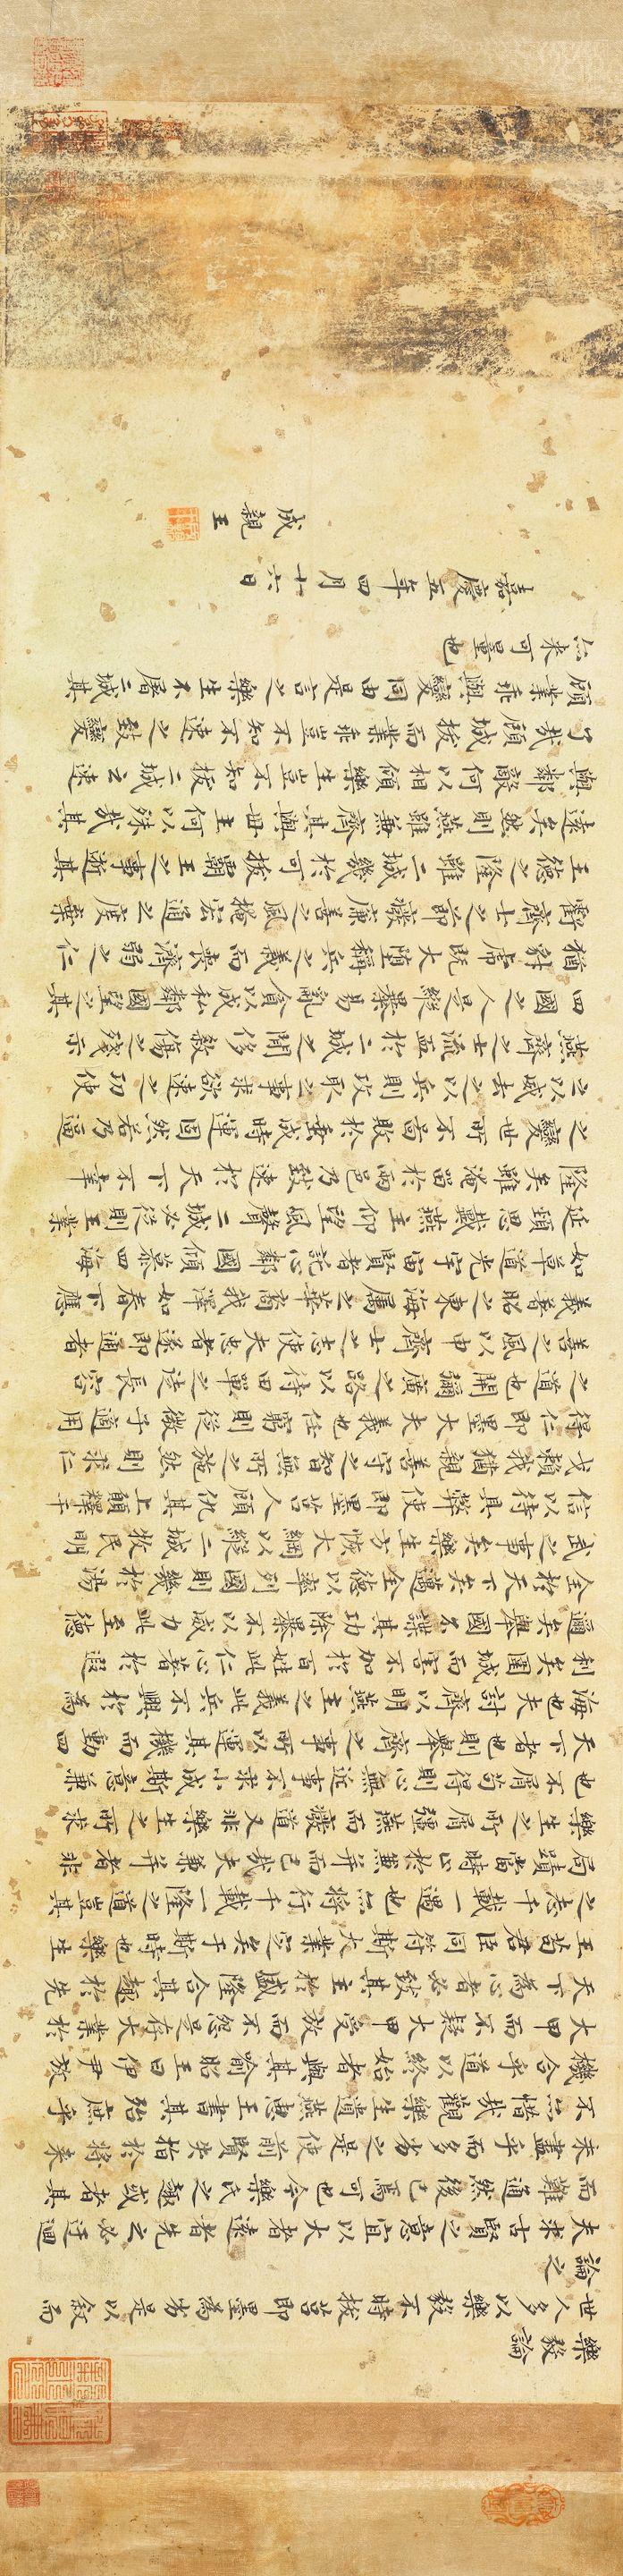 樂毅論
世人多以樂毅不時拔莒即墨為劣是以敘而
論之
夫求古賢之意宜以大者遠者先之必迂迴
而難通然後已焉可也今樂氏之趣或者其
未盡乎而多劣之是使前賢失指於將來
不亦惜哉觀樂生遺燕惠王書其殆庶乎
機合乎道以終始者與其喻昭王曰伊尹放
大甲而不疑大甲受放而不怨是存大業於
天下為心者必致其主於盛隆合其趣於先
王苟君臣同符斯大業定矣于斯時也樂生
之志千載一遇也亦將行千載一隆之道豈其
局蹟當時止於兼并而已哉夫兼并者非
樂生之所屑彊燕而廢道又非樂生之所求
也不屑苟得則心無近事不求小成斯意兼
天下者也則舉齊之事所以運其機而動四
海也夫討齊以明燕主之義此兵不興於為
利矣圍城而害不加於百姓此仁心著於遐
邇矣舉國不謀其功除暴不以威力此至德
全於天下矣邁全德以率列國則幾於湯
武之事矣樂生方恢大綱以縱二城牧民明
信以待其弊使即墨莒人顧仇其上願釋干
戈賴我猶親善守之智無所之施然則求仁
得仁即墨大夫義也任窮則從微子適周
之道也開彌廣之路以待田單之徒長容
善之風以申齊士之志使夫忠者遂節通者
義著昭之東海屬之華裔我澤如春下應
如草道光宇宙賢者託心鄰國傾慕四海
延頸思戴燕主仰望風聲二城必從則王業
隆矣雖淹留於兩邑乃致速於天下不幸
之變世所不圖敗於垂成時運固然若乃逼
之以威劫之以兵則攻取之事求欲速之功使
燕齊之士流血於二城之間侈殺傷之殘示
四國之人是縱暴易亂貪以成私鄰國望之其
猶豺虎既大墮稱兵之義而喪濟弱之仁
虧齊士之節廢廉善之風掩宏通之度棄
王德之隆雖二城幾於可拔霸王之事逝其
遠矣然則燕雖兼齊其與世主何以殊哉其
與鄰敵何以相傾樂生豈不知拔二城之速
了哉顧城拔而業乖豈不知不速之致變
顧業乖與變同由是言之樂生不屠二城其
亦未可量也
嘉慶五年四月十六日
成親王